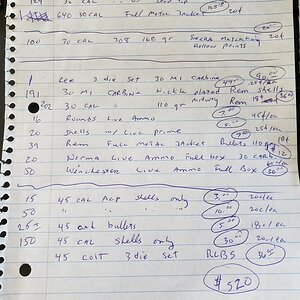 640 10 CAL Full Metal Jacket 20¢
100 30 CAL 308 168 gr Sierra Matchking 20¢
Hollow Points
1 Lee 3 die set 30 M1 Carbine
191 30 M1 Carbine Nickle plated Rem Shells
202 30 CAL 110 gr midway Rem
16 Rounds Live Ammo 7.00 45¢/ea
20 shells w/ Live prime 5.00 25¢/ea
39 Rem Full Metal Jacket Bullets 110 gr
20 Norma Live Ammo Full box 30 CARB
50 Winchesters Live Ammo Full Box 30.00
15 45 CAL ACP shells only 3.00 20¢/ea
50 " " " " 10.00 20¢/ea
25 + 45 cal bullets 5.00 18¢/ea
150 45 CAL shells only 30.00 20¢/ea
45 COLT 3 die set RCBS 36.00
$520